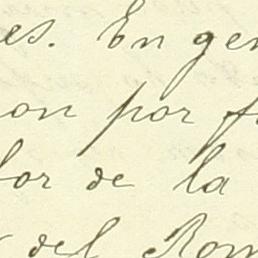 es. En gen
on por f
lor de la
del Rom